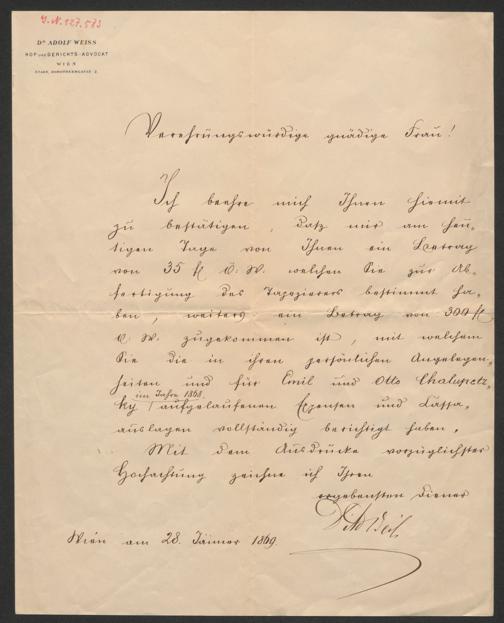 J.N. 127.573
Dr ADOLF WEISS
HOF UND GERICHTS-ADVOCAT
WIEN
STADT, DOROTHEERGASSE 2.
Verehrungswürdige gnädige Frau!
Ich beehre mich Ihnen hiemit
zu bestätigen, daß mir am heu-
tigen Tage von Ihnen ein Betrag
von 35 fl Ö. W. welchen Sie zur Ab-
fertigung des Tapezierers bestimmt ha-
ben, weiters ein Betrag von 300 fl
Ö. W. zugekommen ist, mit welchem
Sie die in ihren persönlichen Angelegen-
heiten und für Emil und Otto Chalupetz-
im Jahre 1868
ky aufgelaufenen Expensen und
auslagen vollständig berichtigt haben.
Mit dem Ausdrucke vorzüglichster
Hochachtung zeichne ich Ihren
ergebensten Diener
Wien am 28. Jänner 1869.